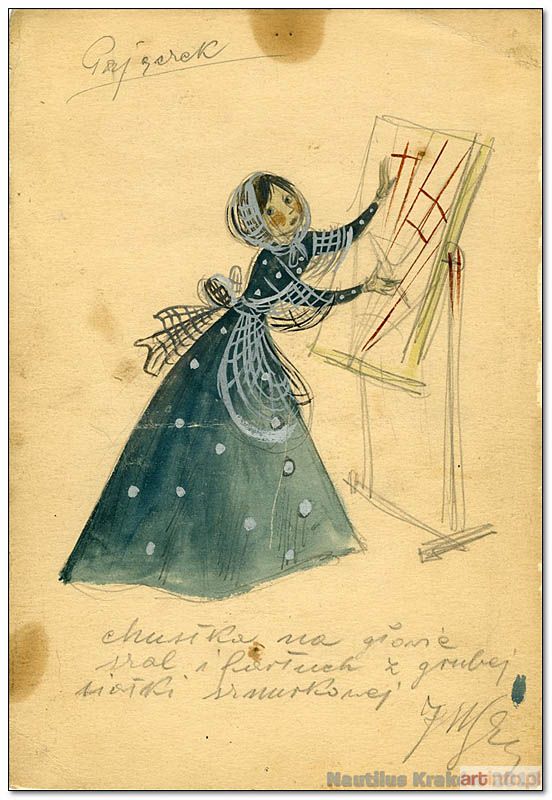 Pajzerek
chustka na głowie
szal i fartuch z grubej
siatki sznurkowej
Nautilus Kraków
artinfo.pl